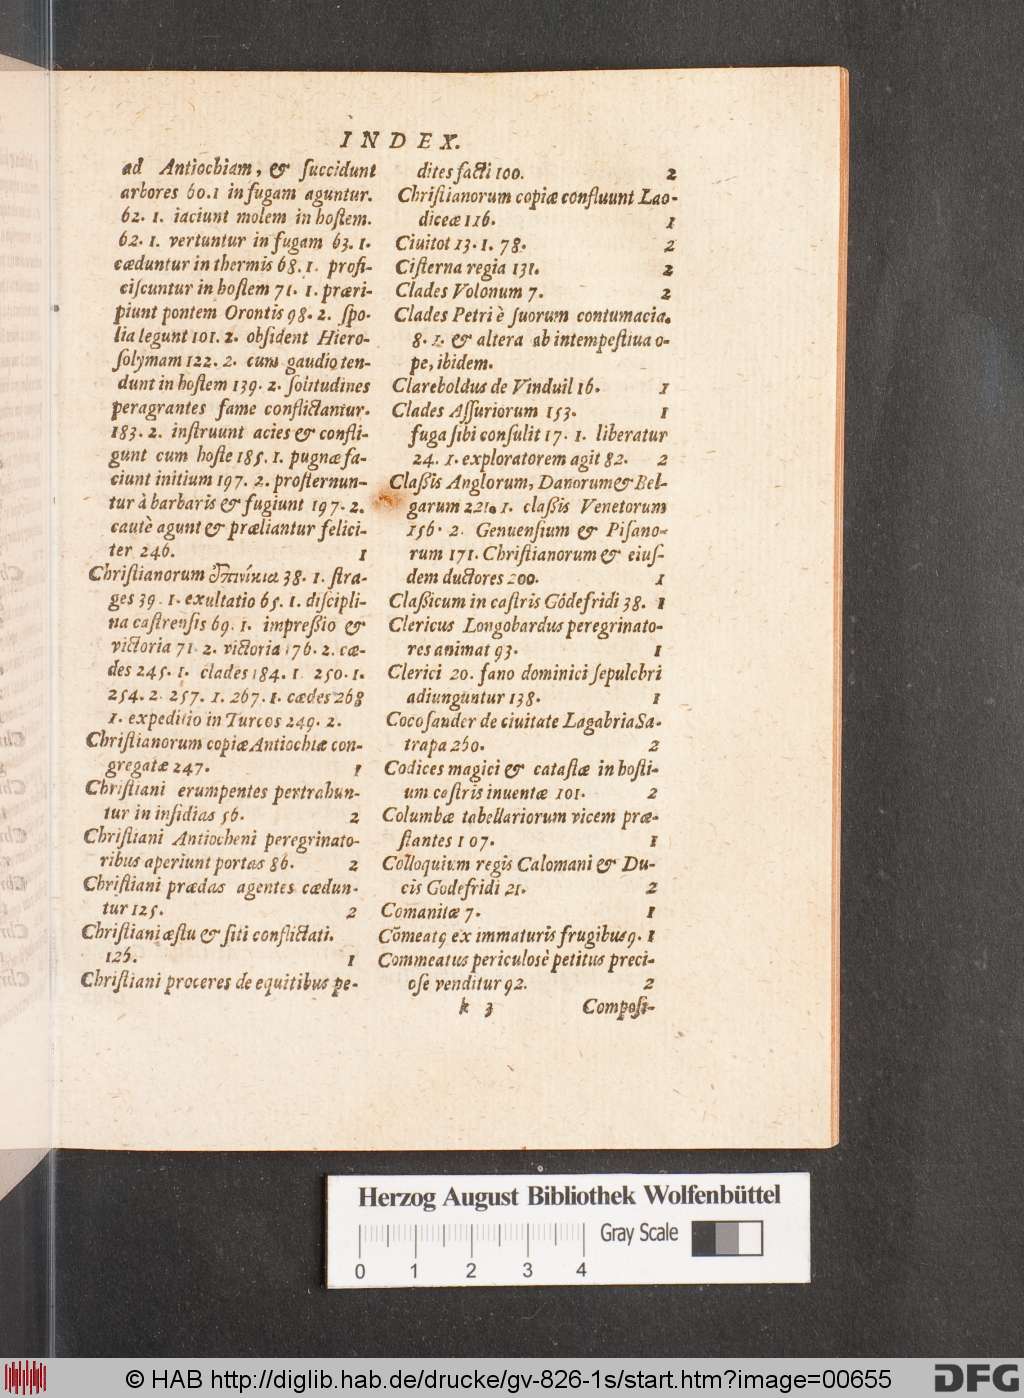 INDEX.
ad Antiochiam, & ſuccidunt
arbores 60.1 in fugam aguntur.
62. 1. iaciunt molem in hoſtem.
62. 1. vertuntur in fugam 63. 1.
cæduntur in thermis 68. 1. profi-
ciſcuntur in hoſtem 71. 1. præri-
piunt pontem Orontis 98. 2. ſpo-
lia legunt 101. 2. obſident Hiero-
ſolymam 122. 2. cum gaudio ten-
dunt in hoſtem 139. 2. ſolitudines
peragrantes fame conflictantur.
183. 2. inſtruunt acies & confli-
gunt cum hoſte 185. 1. pugnæ fa-
ciunt initium 197. 2. proſternun-
tur à barbaris & fugiunt 197. 2.
cautè agunt & præliantur felici-
ter 246. 1
Chriſtianorum ἐπινίκια 38. 1. ſtra-
ges 39. 1. exultatio 65. 1. diſcipli-
na caſtrenſis 69. 1. impreßio &
victoria 71. 2. victoria 176. 2. cæ-
des 245. 1. clades 184. 1. 250. 1.
254. 2. 257. 1. 267. 1. cædes 268
1. expeditio in Turcos 249. 2.
Chriſtianorum copiæ Antiochiæ con-
gregatæ 247. 1
Chriſtiani erumpentes pertrahun-
tur in inſidias 56. 2
Chriſtiani Antiocheni peregrinato-
ribus aperiunt portas 86. 2
Chriſtiani prædas agentes cædun-
tur 125. 2
Chriſtiani æſtu & ſiti conflictati.
126. 1
Chriſtiani proceres de equitibus pe-
dites facti 100. 2
Chriſtianorum copiæ confluunt Lao-
diceæ 116. 1
Ciuitot 13. 1. 78. 2
Ciſterna regia 131. 2
Clades Volonum 7. 2
Clades Petri è ſuorum contumacia.
8. 1. & altera ab intempeſtiua o-
pe, ibidem.
Clareboldus de Vinduil 16. 1
Clades Aſſuriorum 153. 1
fuga ſibi conſulit 17. 1. liberatur
24. 1. exploratorem agit 82. 2
Claßis Anglorum, Danorum & Bel-
garum 221. 1. claßis Venetorum
156. 2. Genuenſium & Piſano-
rum 171. Chriſtianorum & eiuſ-
dem ductores 200. 1
Claßicum in caſtris Gódefridi 38. 1
Clericus Longobardus peregrinato-
res animat 93. 1
Clerici 20. fano dominici ſepulchri
adiunguntur 138. 1
Cocoſander de ciuitate Lagabria Sa-
trapa 260. 2
Codices magici & cataſtæ in hoſti-
um caſtris inuentæ 101. 2
Columbæ tabellariorum vicem præ-
ſtantes 107. 1
Colloquium regis Calomani & Du-
cis Godefridi 21. 2
Comanitæ 7. 1
Cõmeatꝰ ex immaturis frugibus 9. 1
Commeatus periculosè petitus preci-
oſe venditur 92. 2
k 3 Compoſi-
Herzog August Bibliothek Wolfenbüttel
Gray Scale
0 1 2 3 4
© HAB http://diglib.hab.de/drucke/gv-826-1s/start.htm?image=00655
DFG